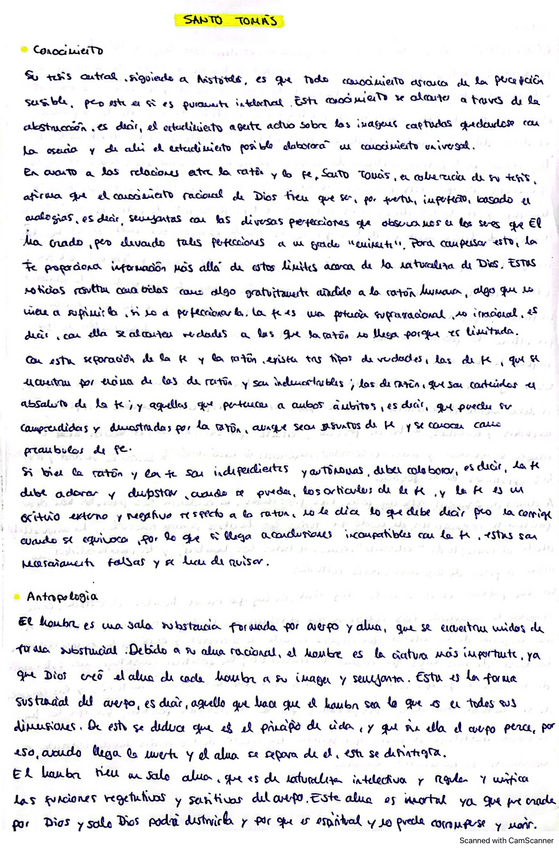 SANTO TOMÁS
Conocimiento
Su tesis central, siguiendo a Aristóteles, es que todo conocimiento arranca de la percepción
sensible, pero este en si es puramente intelectual. Este conocimiento se alcanza a traves de la
abstracción, es decir, el entendimiento agente actua sobre las imagenes captadas quedandose con
la esencia y de ahi el entendimiento posible elaborará un conocimiento universal.
En cuanto a las relaciones entre la razón y la fe, Santo Tomás, en coherencia de su tesis,
afirma que el conocimiento racional de Dios tiene que ser, por fuerza, imperfecto, basado en
analogias, es decir, semejanzas con las diversas perfecciones que observamos en los seres que El
ha creado, pero elevando tales perfecciones a un grado "eminente". Para compensar esto, la
fe proporciona información más allá de estos limites acerca de la naturaleza de Dios. Estas
noticias resultan concebidas como algo gratuitamente añadido a la razón humana, algo que no
viene a suprimirla, si no a perfeccionarla. La fe es una potencia suprarracional, no irracional, es
decir, con ella se alcanzan verdades a las que la razón no llega porque es limitada.
Con esta separación de la fe y la razón, existen tres tipos de verdades, las de fe, que se
encuentran por encima de las de razón y son indemostrables; las de razón, que son
absoluto de la fe; y aquellas que pertenecen a ambos ámbitos, es decir, que pueden ser
comprendidas y demostradas por la razón, aunque sean asuntos de fe y se conocen como
preambulos de fe.
Si bien la razón y la fe son independientes y autónomas, deben colaborar, es decir, la fe
debe aclarar y , cuando se pueda, los articulos de la fe, y la fe es un
criterio externo y negativo respecto a la razon, no le dice lo que debe decir pero la corrige
cuando se equivoca, por lo que si llega a conclusiones incompatibles con la fe, estas son
necesariamente falsas y se han de revisar.
Antropologia
El hombre es una sola substancia formada por cuerpo y alma, que se encuentran unidos de
forma substancial. Debido a su alma racional, el hombre es la criatura más importante, ya
que Dios creó el alma de cada hombre a su imagen y semejanza. Esta es la forma
sustancial del cuerpo, es decir, aquello que hace que el hombre sea lo que es en todas sus
dimensiones. De esto se deduce que es el principio de vida, y que sin ella el cuerpo perece, por
eso, cuando llega la muerte y el alma se separa de el, este se desintegra.
El hombre tiene un solo alma, que es de naturaleza intelectiva y regula y unifica
las funciones vegetativas y sensitivas del cuerpo. Este alma es inmortal ya que fue creada
por Dios y solo Dios podrá destruirla y por que es espiritual y no puede corromperse y morir.
Scanned with CamScanner